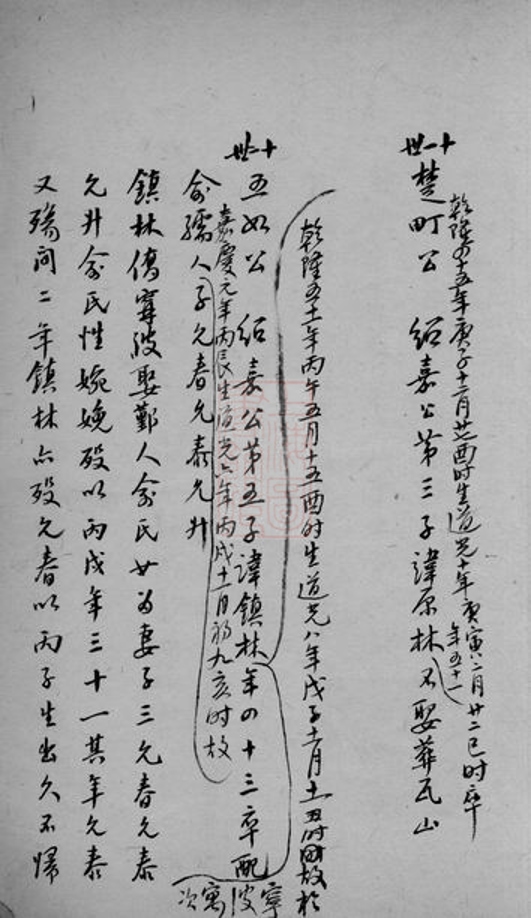 乾隆四十五年庚子十二月廿酉时生道光十年庚寅二月廿二巳时卒
年五十一
十一世
楚町公 绍嘉公第三子諱原林不娶葬瓦山
乾隆五十一年丙午五月十五酉时生道光八年戊子十一月十一丑时故於
寧波
寓次
十一世
五如公 绍嘉公第五子諱鎮林年四十三卒配
嘉慶元年丙辰生道光六年丙戌十一月初九亥时故
俞孺人子允春允泰允升
鎮林僑甯波娶鄞人俞氏女为妻子三允春允泰
允升俞氏性婉娩殁以丙戌年三十一其年允泰
又殤间二年鎮林亦殁允春以丙子生出久不帰